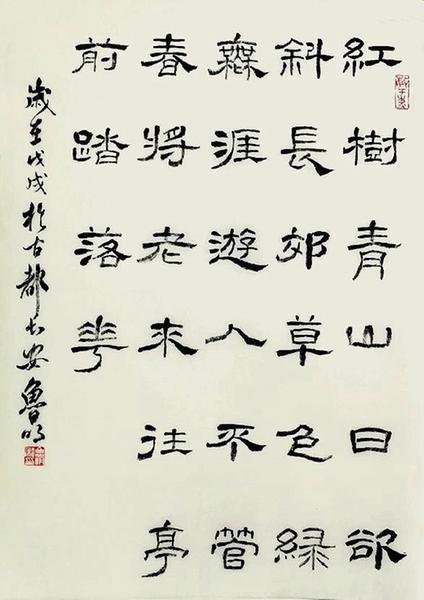 紅樹青山日欲
斜長郊草色綠
無涯遊人不管
春將老來往亭
前踏落花
歲在戊戌於古都长安魯明